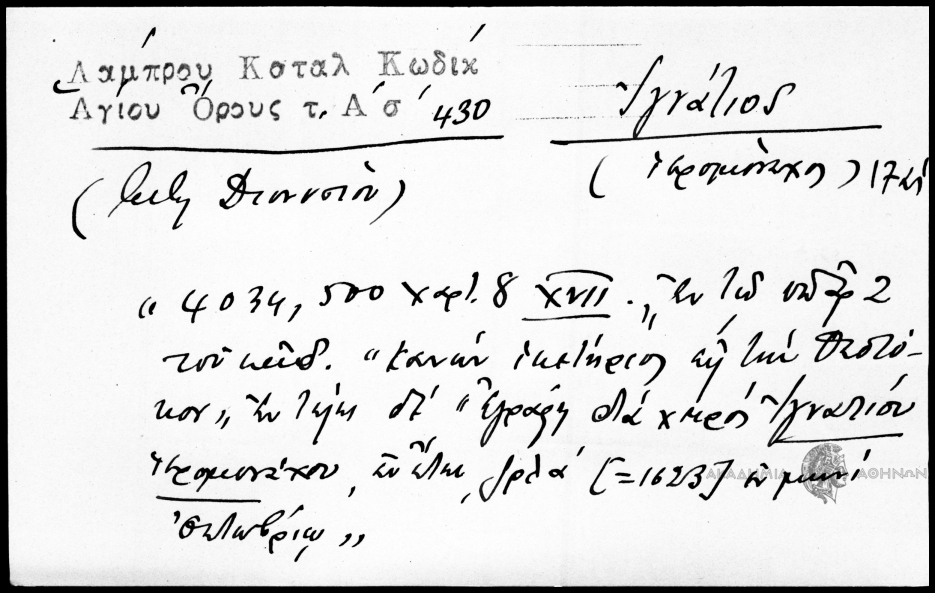 Λάμπρου Καταλ Κωδίκ
Αγίου Όρους τ. Α΄ σ΄ 430
Ἰγνάτιος
(Μονὴ Διονυσίου)
(ἱερομόναχος) 17 αἰ
" 4034, 500 χαρτ. 8 XVII. " Ἐν τῷ ὑπ' ἀρ 2
τοῦ κώδ. " Κανὼν ἱκετήριος εἰς τὴν Θεοτό-
κον " Ἐν τέλει δὲ " Ἐγράφη διὰ χειρὸς Ἰγνατίου
ἱερομονάχου ἐν ἔτει ͵ζρλα΄ [=1623] ἐν μηνὶ
Ὀκτωβρίῳ "
ΑΚΑΔΗΜΙΑ ΑΘΗΝΩΝ